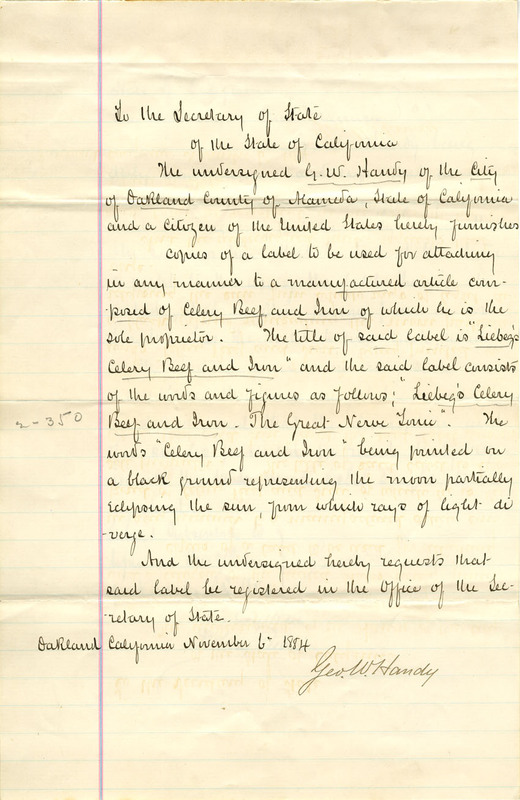 To the Secretary of State
of the State of California
The undersigned G. W. Handy of the City
of Oakland County of Alameda, State of California
and a Citizen of the United States hereby furnishes
copies of a label to be used for attaching
in any manner to a manufactured article com-
posed of Celery Beef and Iron of which he is the
sole proprietor. The title of said label is "Liebeg's
Celery Beef and Iron" and the said label consists
of the words and figures as follows; "Liebeg's Celery
2-350
Beef and Iron. The Great Nerve Tonic". The
words "Celery Beef and Iron" being printed on
a black ground representing the moon partially
eclipsing the sun, from which rays of light di
verge.
And the undersigned hereby requests that
said label be registered in the Office of the Sec-
retary of State.
Oakland California November 6 1884
Geo. W. Handy